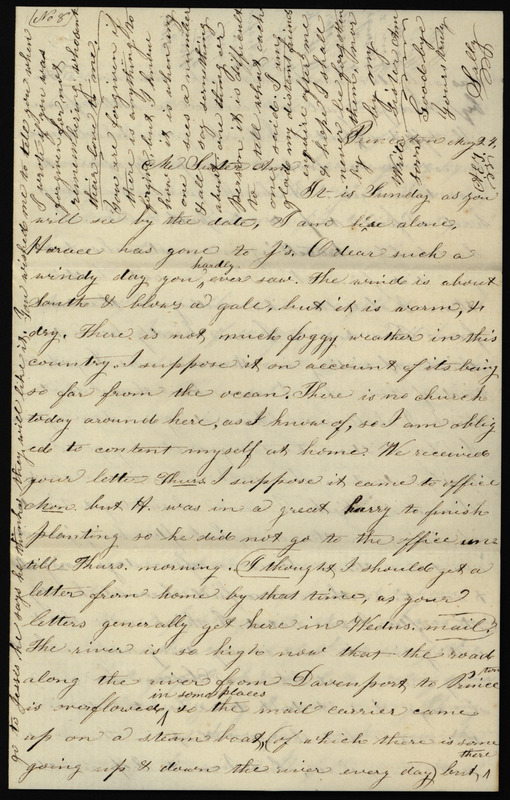 (No 8)
Princeton May 24,
My Sister Ann
It is Sunday as you
will see by the date, I am here alone,
Horace has gone to J's. O dear such a
windy day you hardly ever saw. The wind is about
South & blows a gale, but it is warm, &
dry. There is not much foggy weather in this
country. I suppose it on account of its being
so far from the ocean. There is no church
today around here, as I know of, so I am oblig
ed to content myself at home. We received
your letter Thurs. I suppose it came to office
Mon. but H. was in a great hurry to finish
planting so he did not go to the office un=
till Thurs. morning. (I thought I should get a
letter from home by that time, as your
letters generally get here in Wedns. mail)
The river is so high now that the road
along the river from Davenport to Princeton
is overflowed in some places, so the mail carrier came
up on a steam boat, (of which there is some
going up & down the river every day) but there
go to Jesses he says he thinks they will like it. You wished me to tell you when
I was
forgiven for not
remembering
their love to me.
You are forgiven if
there is anything to
forgive, but I know
how it is when
one sees a number
& all say something
because it is difficult
to tell what each
one said. I may
you are all to me
& hope I shall
never be forgotten
by them, nor
by my
Sister Ann
Write soon
Good bye
Yours truly
Sally